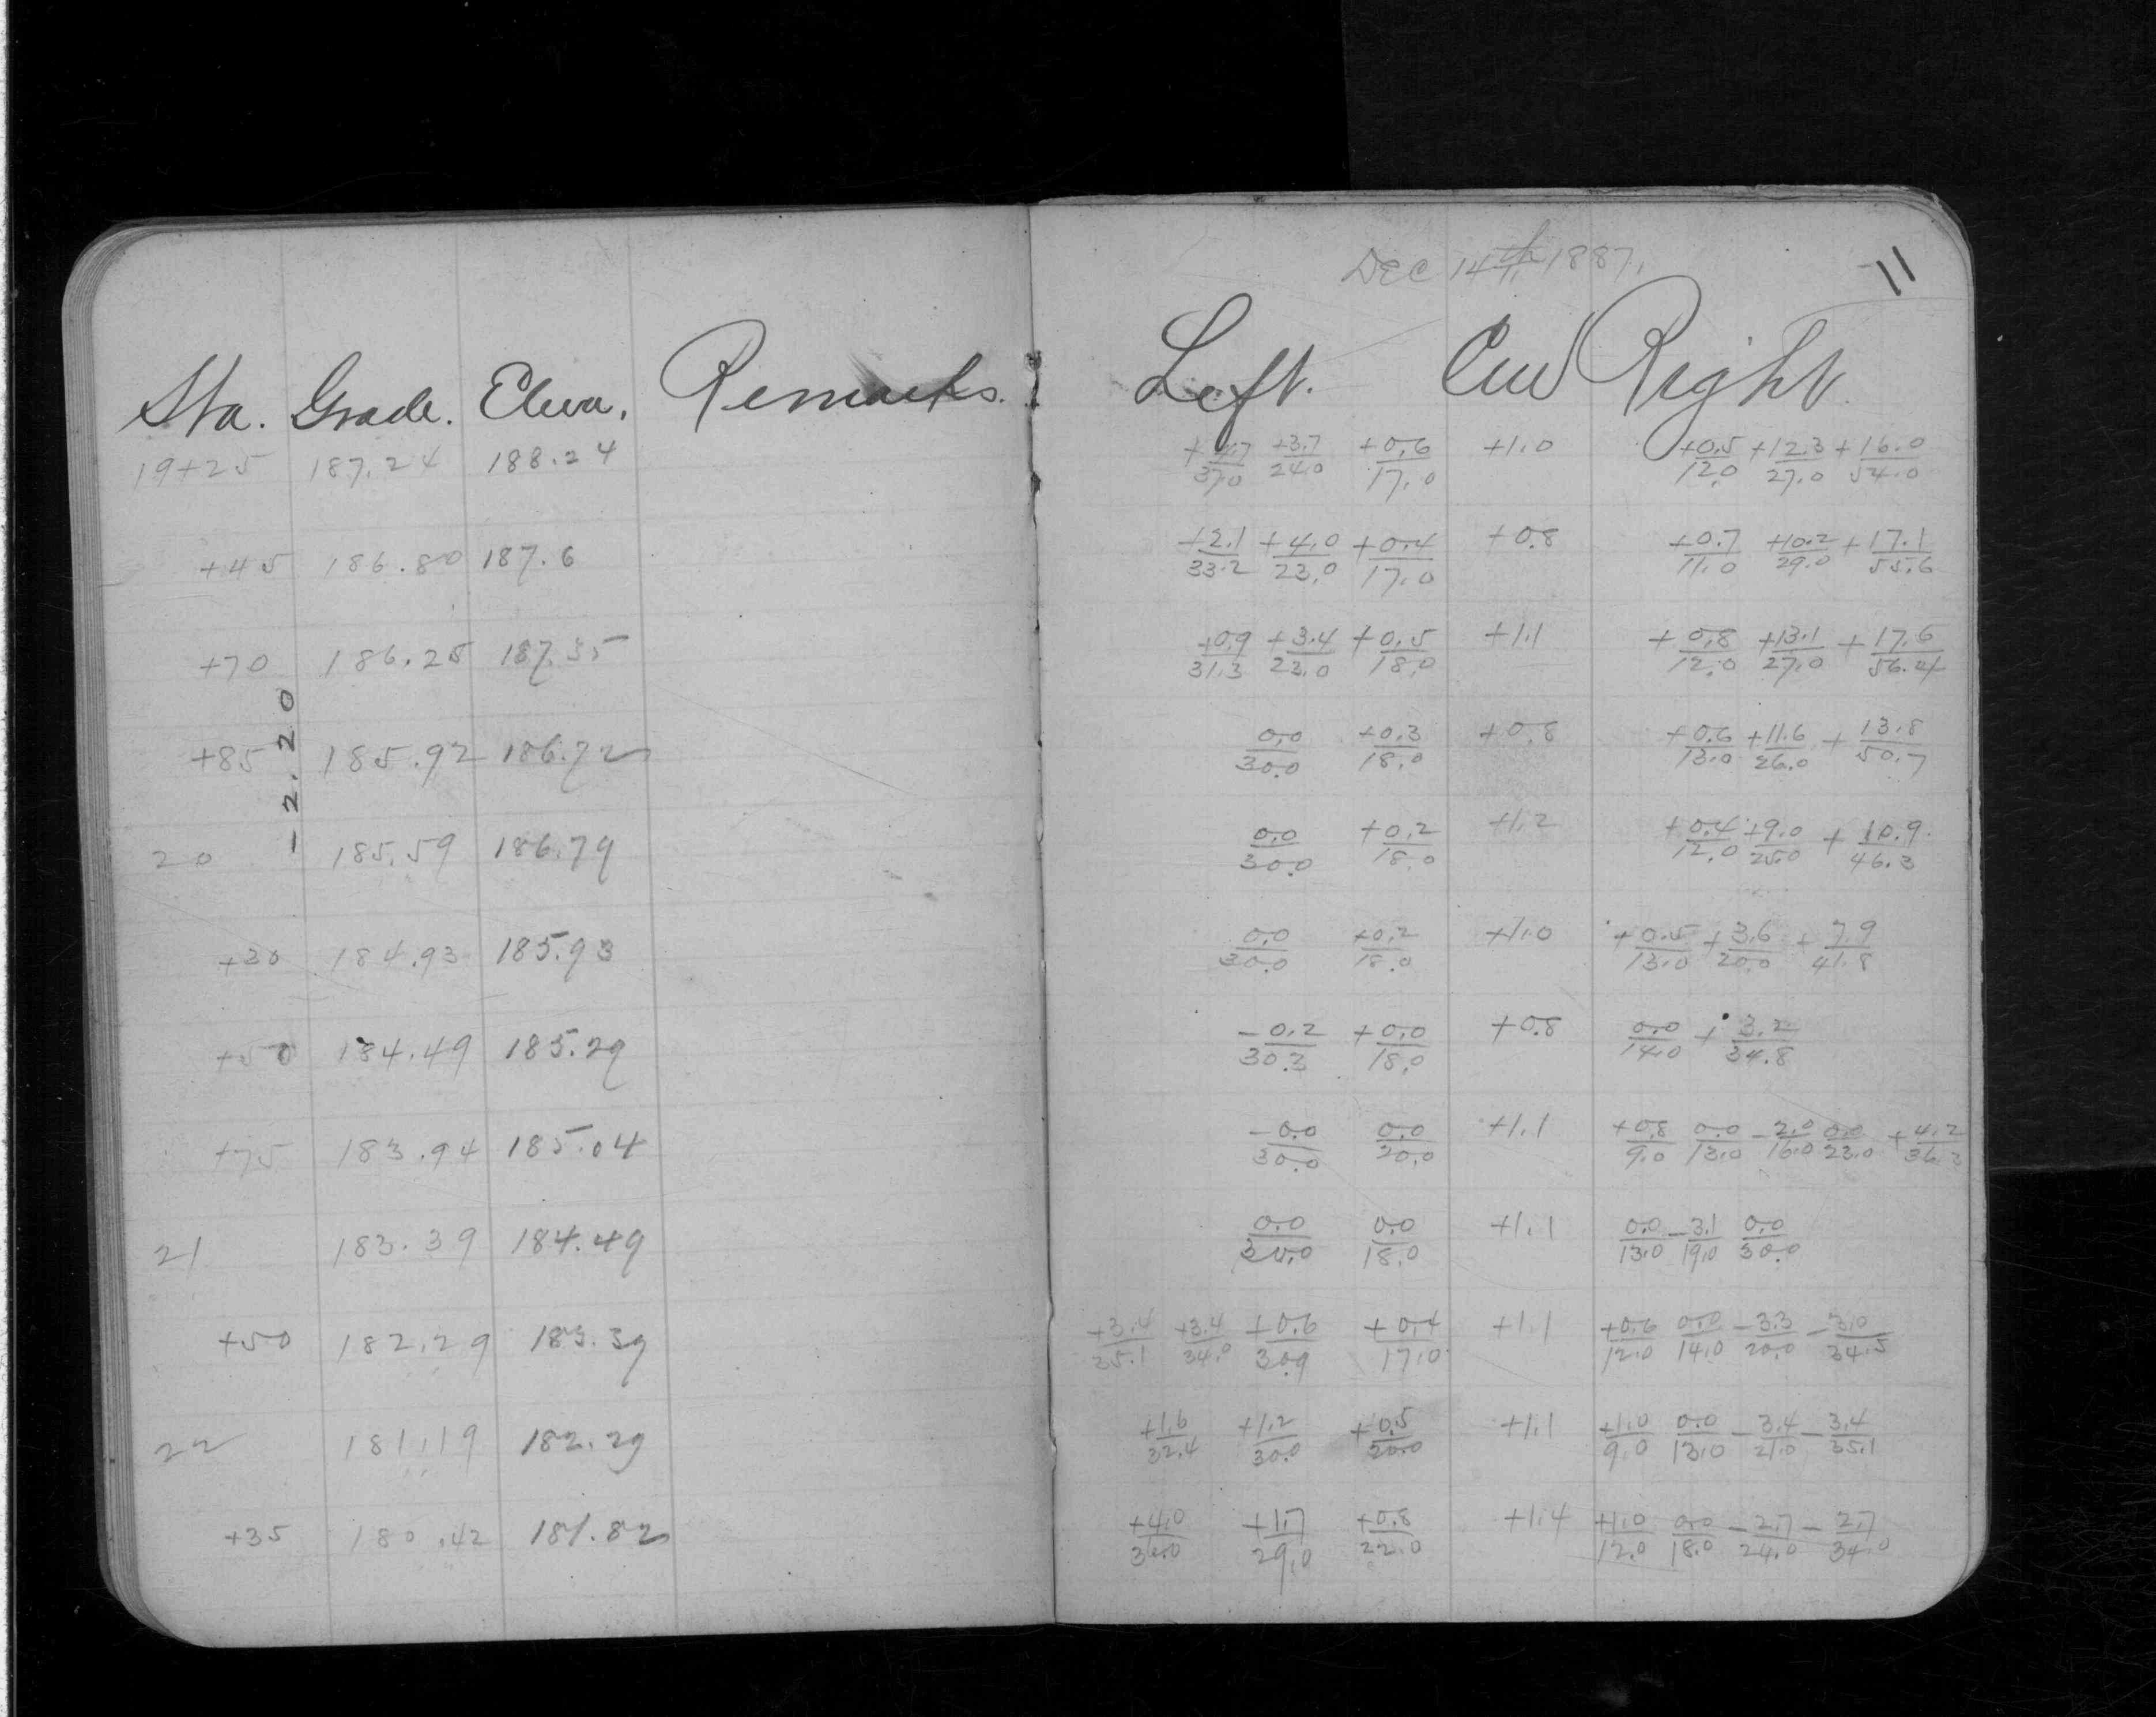 Dec 14th 1887.
11
Sta. Grade. Eleva. Remarks. Left. Cen Right
19+25 187.24 188.24 37.0 +3.7/24.0 +0.6/17.0 +1.0 +0.5/12.0 +12.3/27.0 +16.0/54.0
+45 186.80 187.6 +2.1/33.2 +4.0/23.0 +0.4/17.0 +0.8 +0.7/11.0 +10.2/29.0 +17.1/55.6
+70 186.25 187.35 +0.9/31.3 +3.4/23.0 +0.5/18.0 +1.1 +0.8/12.0 +13.1/27.0 +17.6/56.4
-2.20
+85 185.92 186.72 0.0/30.0 +0.3/18.0 +0.8 +0.6/13.0 +11.6/26.0 +13.8/50.7
20 185.59 186.79 0.0/30.0 +0.2/18.0 +1.2 +0.4/12.0 +9.0/25.0 +10.9/46.3
+30 184.93 185.93 0.0/30.0 +0.2/18.0 +1.0 +0.5/13.0 +3.6/20.0 +7.9/41.8
+50 184.49 185.29 -0.2/30.3 +0.0/18.0 +0.8 0.0/14.0 +3.2/34.8
+75 183.94 185.04 -0.0/30.0 0.0/20.0 +1.1 +0.8/9.0 0.0/13.0 -2.0/16.0 0.0/23.0 +4.2/36.3
21 183.39 184.49 0.0/30.0 0.0/18.0 +1.1 0.0/13.0 -3.1/19.0 0.0/30.0
+50 182.29 183.39 +3.4/35.1 +3.4/34.0 +0.6/30.9 +0.4/17.0 +1.1 +0.6/12.0 0.0/14.0 -3.3/20.0 -3.0/34.5
22 181.19 182.29 +1.6/32.4 +1.2/30.0 +0.5/20.0 +1.1 +1.0/9.0 0.0/13.0 -3.4/21.0 -3.4/35.1
+35 180.42 181.82 +4.0/36.0 +1.7/29.0 +0.8/22.0 +1.4 +1.0/12.0 0.0/18.0 -2.7/24.0 -2.7/34.0